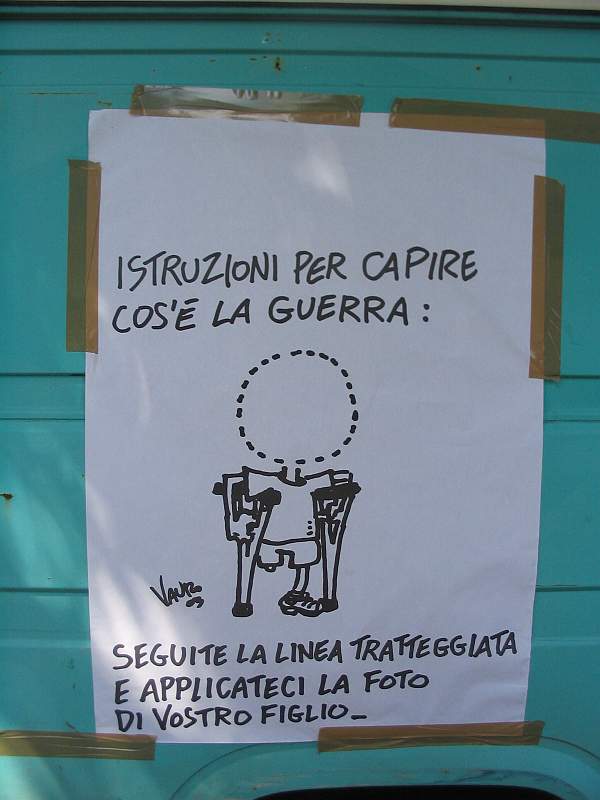 ISTRUZIONI PER CAPIRE
COS'È LA GUERRA:
VAURO
03
SEGUITE LA LINEA TRATTEGGIATA
E APPLICATECI LA FOTO
DI VOSTRO FIGLIO_